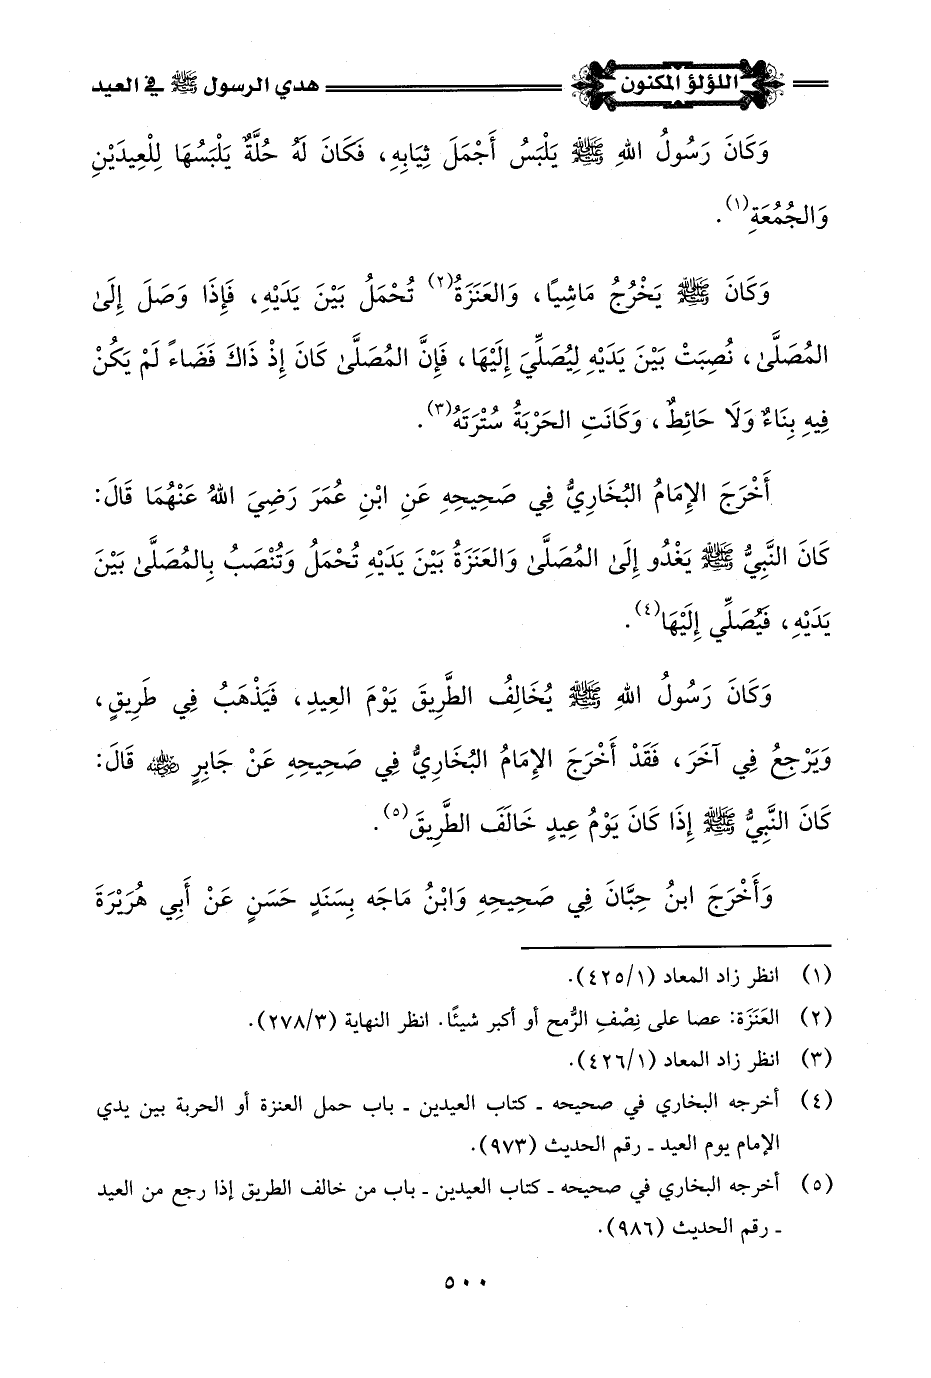 اللؤلؤ المكنون هدي الرسول ﷺ في العيد
وَكَانَ رَسُولُ اللهِ ﷺ يَلْبَسُ أَجْمَلَ ثِيَابِهِ، فَكَانَ لَهُ حُلَّةٌ يَلْبَسُهَا لِلْعِيدَيْنِ
وَالجُمُعَةِ(١).
وَكَانَ ﷺ يَخْرُجُ مَاشِيًا، وَالعَنَزَةُ(٢) تُحْمَلُ بَيْنَ يَدَيْهِ، فَإِذَا وَصَلَ إِلَىٰ
المُصَلَّىٰ، نُصِبَتْ بَيْنَ يَدَيْهِ لِيُصَلِّيَ إِلَيْهَا، فَإِنَّ المُصَلَّىٰ كَانَ إِذْ ذَاكَ فَضَاءً لَمْ يَكُنْ
فِيهِ بِنَاءٌ وَلَا حَائِطٌ، وَكَانَتِ الحَرْبَةُ سُتْرَتَهُ(٣).
أَخْرَجَ الإِمَامُ البُخَارِيُّ فِي صَحِيحِهِ عَنِ ابْنِ عُمَرَ رَضِيَ اللهُ عَنْهُمَا قَالَ:
كَانَ النَّبِيُّ ﷺ يَغْدُو إِلَىٰ المُصَلَّىٰ وَالعَنَزَةُ بَيْنَ يَدَيْهِ تُحْمَلُ وَتُنْصَبُ بِالمُصَلَّىٰ بَيْنَ
يَدَيْهِ، فَيُصَلِّي إِلَيْهَا(٤).
وَكَانَ رَسُولُ اللهِ ﷺ يُخَالِفُ الطَّرِيقَ يَوْمَ العِيدِ، فَيَذْهَبُ فِي طَرِيقٍ،
وَيَرْجِعُ فِي آخَرَ، فَقَدْ أَخْرَجَ الإِمَامُ البُخَارِيُّ فِي صَحِيحِهِ عَنْ جَابِرٍ رضي الله عنه قَالَ:
كَانَ النَّبِيُّ ﷺ إِذَا كَانَ يَوْمُ عِيدٍ خَالَفَ الطَّرِيقَ(٥).
وَأَخْرَجَ ابنُ حِبَّانَ فِي صَحِيحِهِ وَابْنُ مَاجَه بِسَنَدٍ حَسَنٍ عَنْ أَبِي هُرَيْرَةَ
(١) انظر زاد المعاد (٤٢٥/١).
(٢) العَنَزَة: عصا على نِصْفِ الرُّمح أو أكبر شيئًا. انظر النهاية (٢٧٨/٣).
(٣) انظر زاد المعاد (٤٢٦/١).
(٤) أخرجه البخاري في صحيحه ـ كتاب العيدين ـ باب حمل العنزة أو الحربة بين يدي
الإمام يوم العيد ـ رقم الحديث (٩٧٣).
(٥) أخرجه البخاري في صحيحه ـ كتاب العيدين ـ باب من خالف الطريق إذا رجع من العيد
ـ رقم الحديث (٩٨٦).
٥٠٠